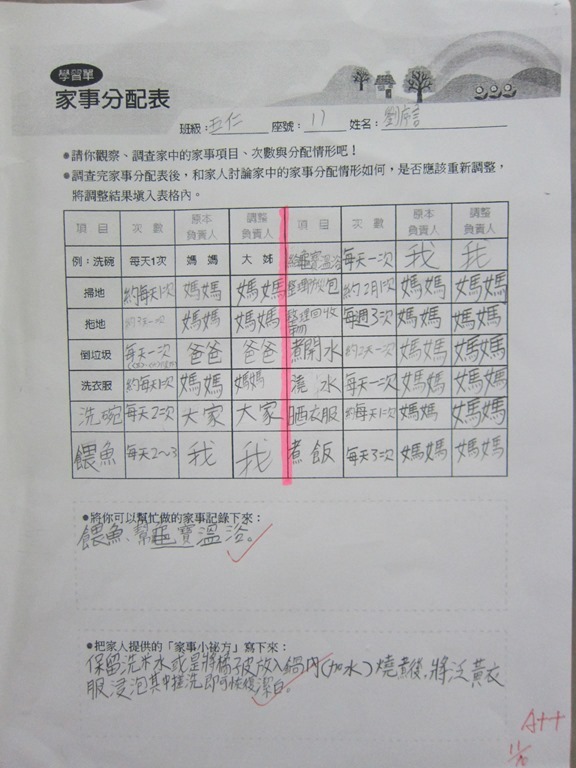 學習單
家事分配表
班級：五仁 座號：11 姓名：劉
●請你觀察、調查家中的家事項目、次數與分配情形吧！
●調查完家事分配表後，和家人討論家中的家事分配情形如何，是否應該重新調整，
將調整結果填入表格內。
項目 次數 原本負責人 調整負責人 項目 次數 原本負責人 調整負責人
例：洗碗 每天1次 媽媽 大姊 龜寶溫浴 每天一次 我 我
掃地 約每天1次 媽媽 媽媽 整理 包 約2月1次 媽媽 媽媽
拖地 媽媽 媽媽 整理回收物 每週3次 媽媽 媽媽
倒垃圾 每天一次 爸爸 爸爸 煮開水 約2天一次 媽媽 媽媽
洗衣服 約每天1次 媽媽 媽媽 澆水 每天一次 媽媽 媽媽
洗碗 每天2次 大家 大家 晒衣服 約每天1次 媽媽 媽媽
餵魚 每天2～3 我 我 煮飯 每天3次 媽媽 媽媽
●將你可以幫忙做的家事記錄下來：
餵魚、幫龜寶溫浴。
●把家人提供的「家事小祕方」寫下來：
保留洗米水或是將橘子皮放入鍋內(加水)燒煮後，將泛黃衣
服浸泡其中搓洗即可恢復潔白。
A++
11/10